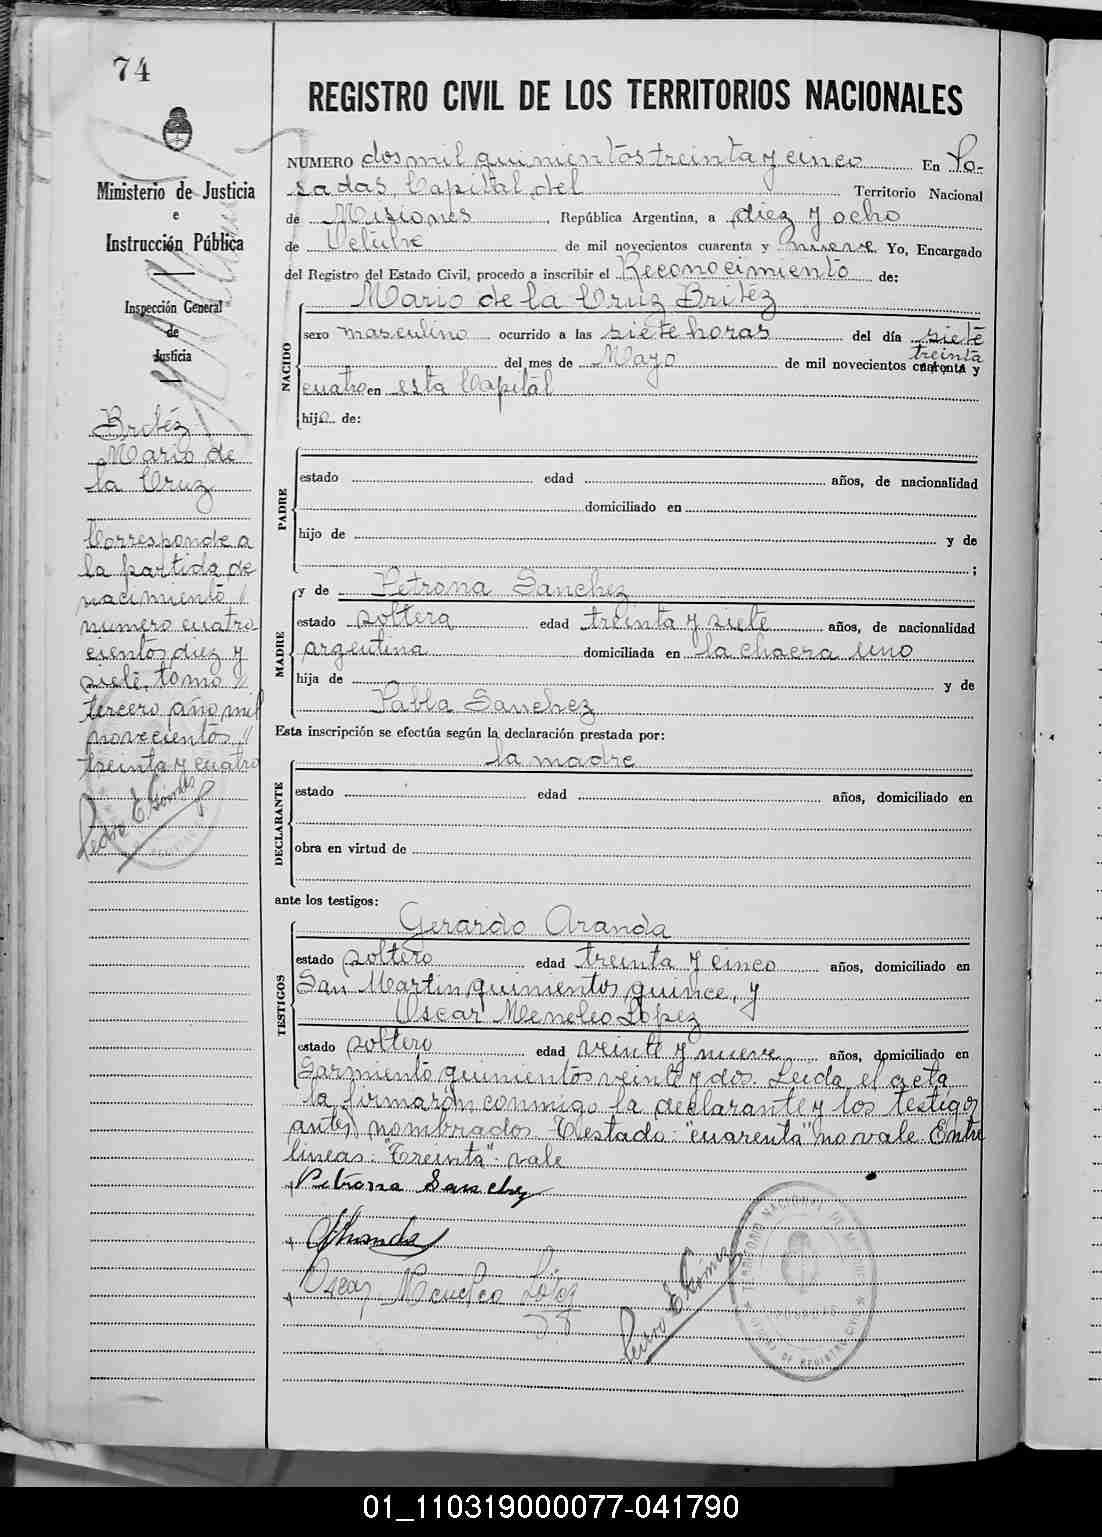 74
Ministerio de Justicia
e
Instrucción Pública
Inspección General
de
Justicia
Britéz
Mario de
la Cruz
Corresponde a
la partida de
nacimiento //
número cuatro
cientos diez y
siete, tomo //
tercero año mil
novecientos //
treinta y cuatro
Pedro E. Gómez
REGISTRO CIVIL DE LOS TERRITORIOS NACIONALES
NUMERO dos mil quinientos treinta y cinco En Po-
sadas, Capital del Territorio Nacional
de Misiones, República Argentina, a diez y ocho
de Octubre de mil novecientos cuarenta y nueve Yo, Encargado
del Registro del Estado Civil, procedo a inscribir el Reconocimiento de:
NACIDO
Mario de la Cruz Britéz
sexo masculino ocurrido a las siete horas del día siete
treinta
del mes de Mayo de mil novecientos cuarenta y
cuatro en esta Capital
hijo de:
PADRE
estado edad años, de nacionalidad
domiciliado en
hijo de y de
;
MADRE
y de Petrona Sanchez
estado soltera edad treinta y siete años, de nacionalidad
argentina domiciliada en la chacra uno
hija de y de
Pabla Sanchez
Esta inscripción se efectúa según la declaración prestada por:
la madre
DECLARANTE
estado edad años, domiciliado en
obra en virtud de
ante los testigos:
TESTIGOS
Gerardo Aranda
estado soltero edad treinta y cinco años, domiciliado en
San Martin quinientos quince, y
Oscar Meneleo López
estado soltero edad veinte y nueve años, domiciliado en
Sarmiento quinientos veinte y dos. Leida el acta
la firmaron conmigo la declarante y los testigos
antes nombrados. Testado: "cuarenta" no vale. Entre
lineas: "treinta" - vale
Petrona Sanchez
Oscar Meneleo López
Pedro E. Gómez
TERRITORIO NACIONAL DE MISIONES
POSADAS
OFICINA DE REGISTRO CIVIL
01_110319000077-041790